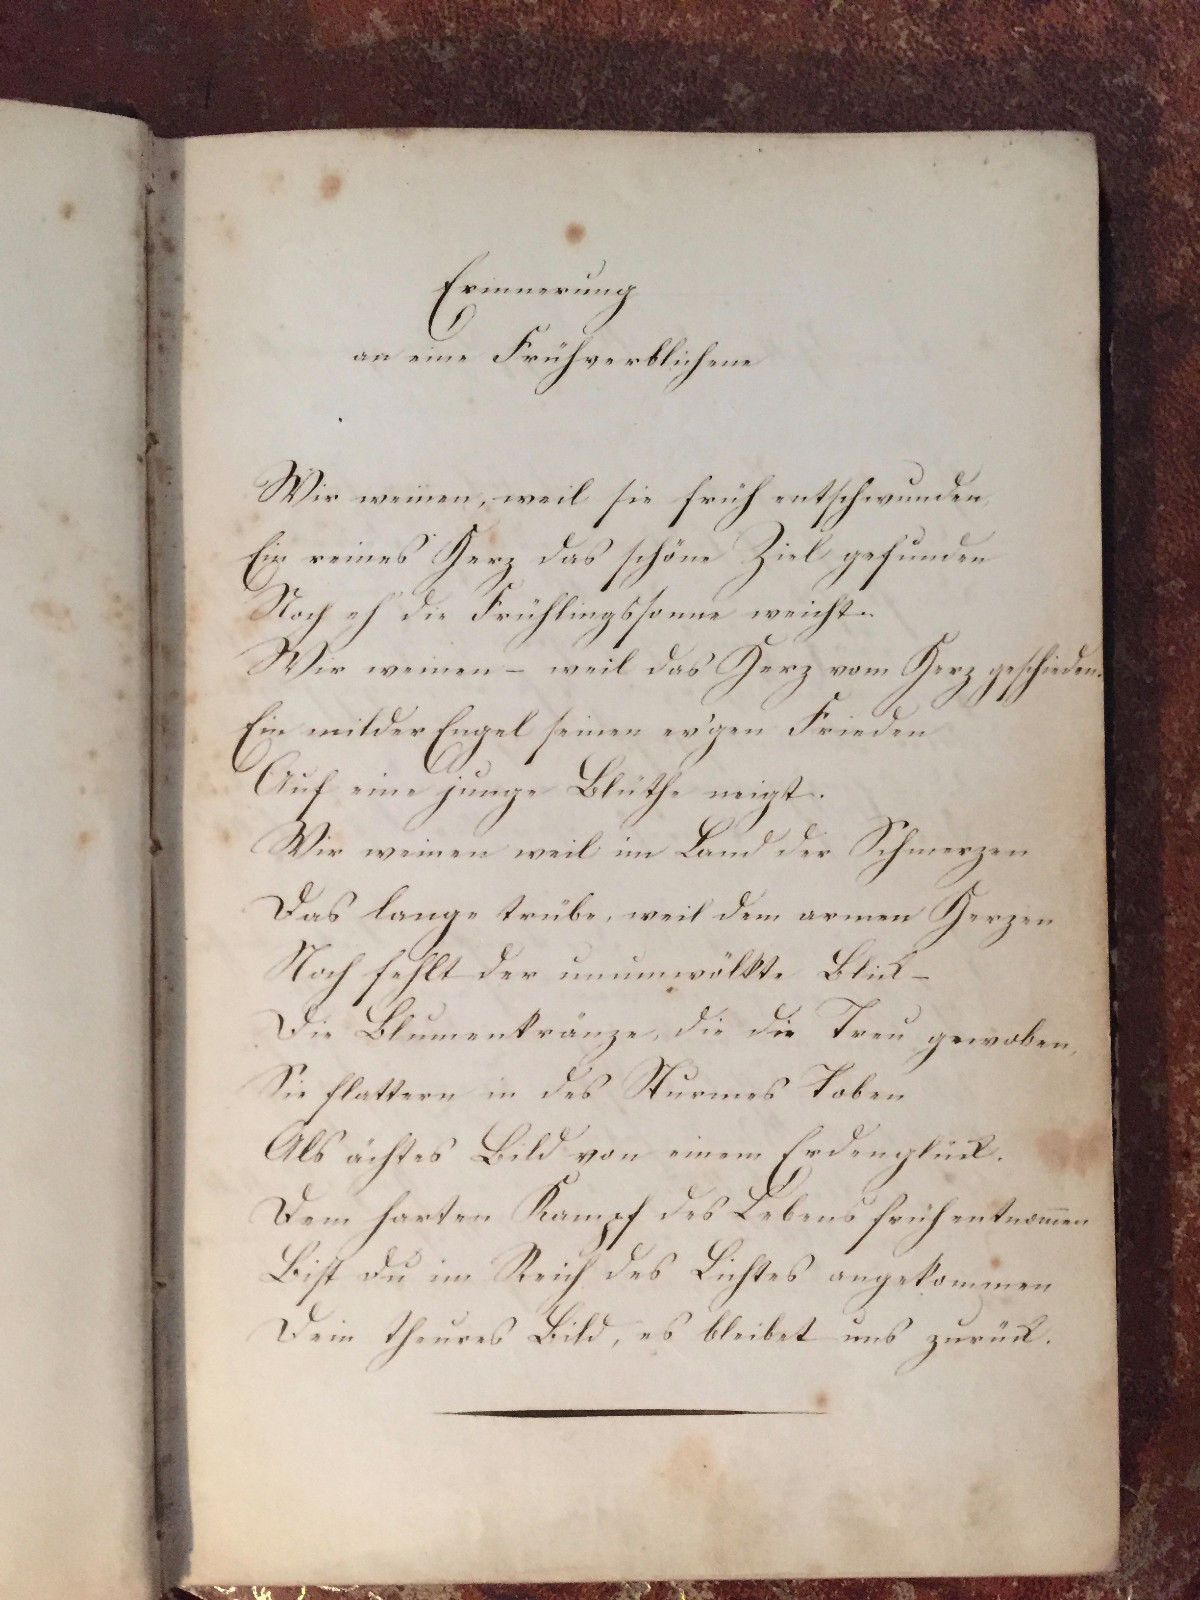 Erinnerung
an eine Frühverblichene
Wir weinen, weil sie früh entschwunden,
Ein reines Herz das schöne Ziel gefunden
Noch eh' die Frühlingssonne weicht.
Wir weinen – weil das Herz vom Herz geschieden.
Ein milder Engel seinen ew'gen Frieden
Auf eine junge Blüthe neigt.
Wir weinen weil im Land der Schmerzen
Das lange trübe, weil dem armen Herzen
Noch fehlt der unumwölkte Blick –
Die Blumenkränze, die die Treu gewoben,
Sie flattern in des Sturmes Toben
Als ächtes Bild von einem Erdenglück.
Dem harten Kampf des Lebens früh entnom̄en
Bist du im Reich des Lichtes angekommen
Dein theures Bild, es bleibet uns zurück.